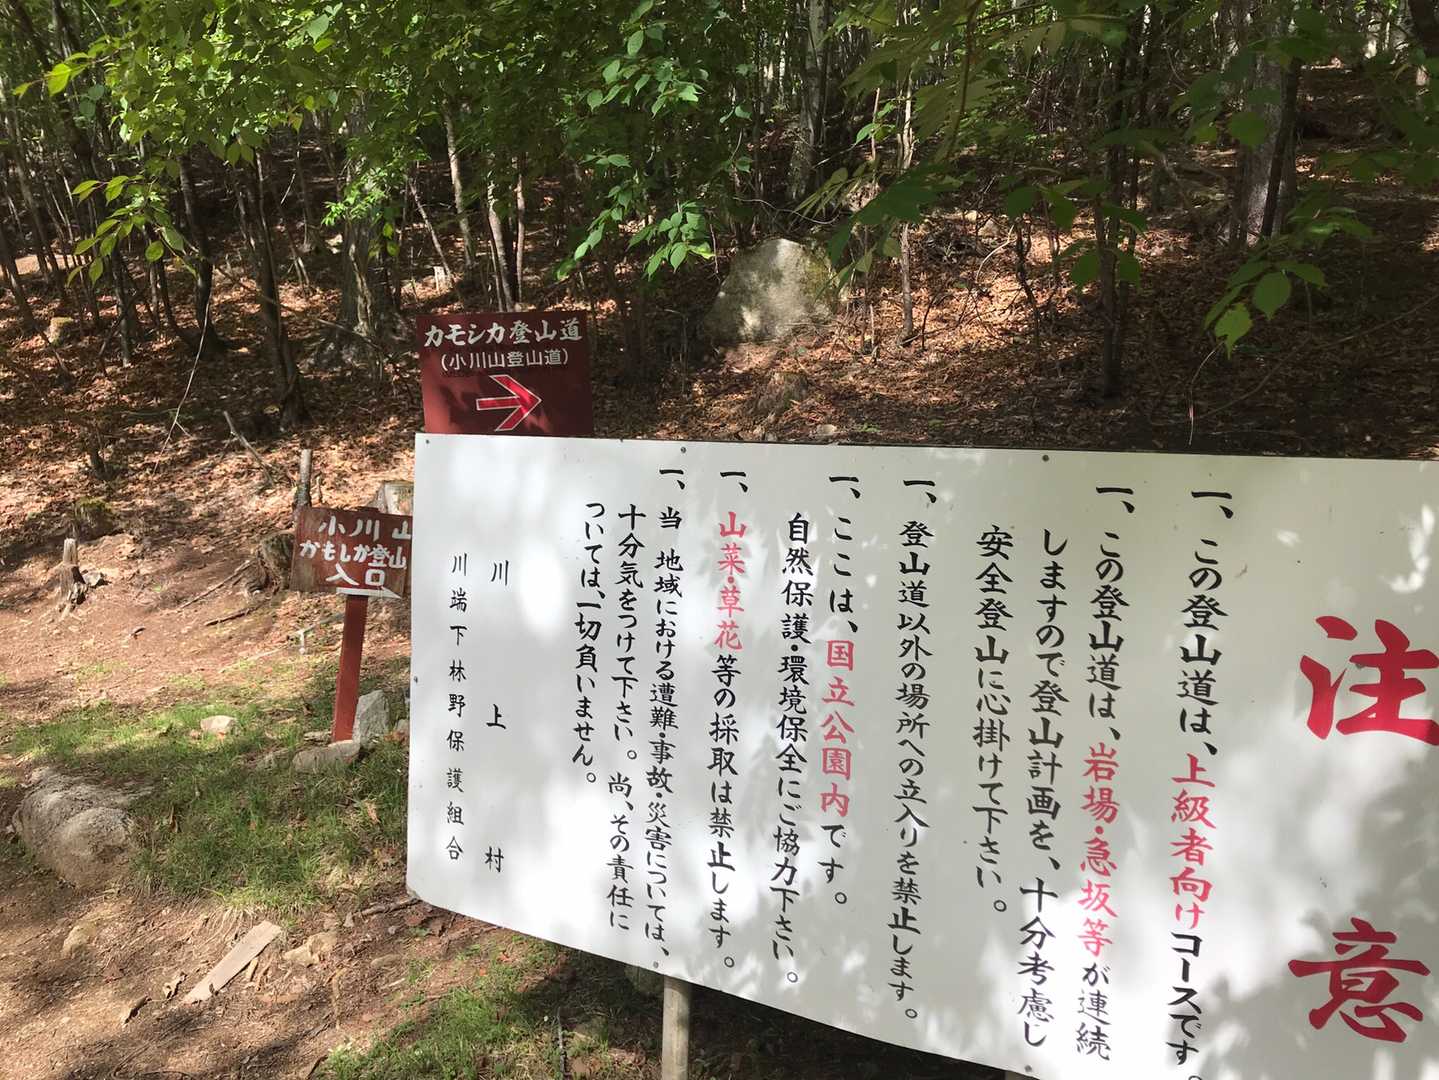 カモシカ登山道
(小川山登山道)
小川山
かもしか登山
入口
注意
一、この登山道は、上級者向けコースです。
一、この登山道は、岩場・急坂等が連続
しますので登山計画を、十分考慮し
安全登山に心掛けて下さい。
一、登山道以外の場所への立入りを禁止します。
一、ここは、国立公園内です。
自然保護・環境保全にご協力下さい。
一、山菜・草花等の採取は禁止します。
一、当 地域における遭難・事故・災害については、
十分気をつけて下さい。尚、その責任に
ついては、一切負いません。
川上村
川端下林野保護組合